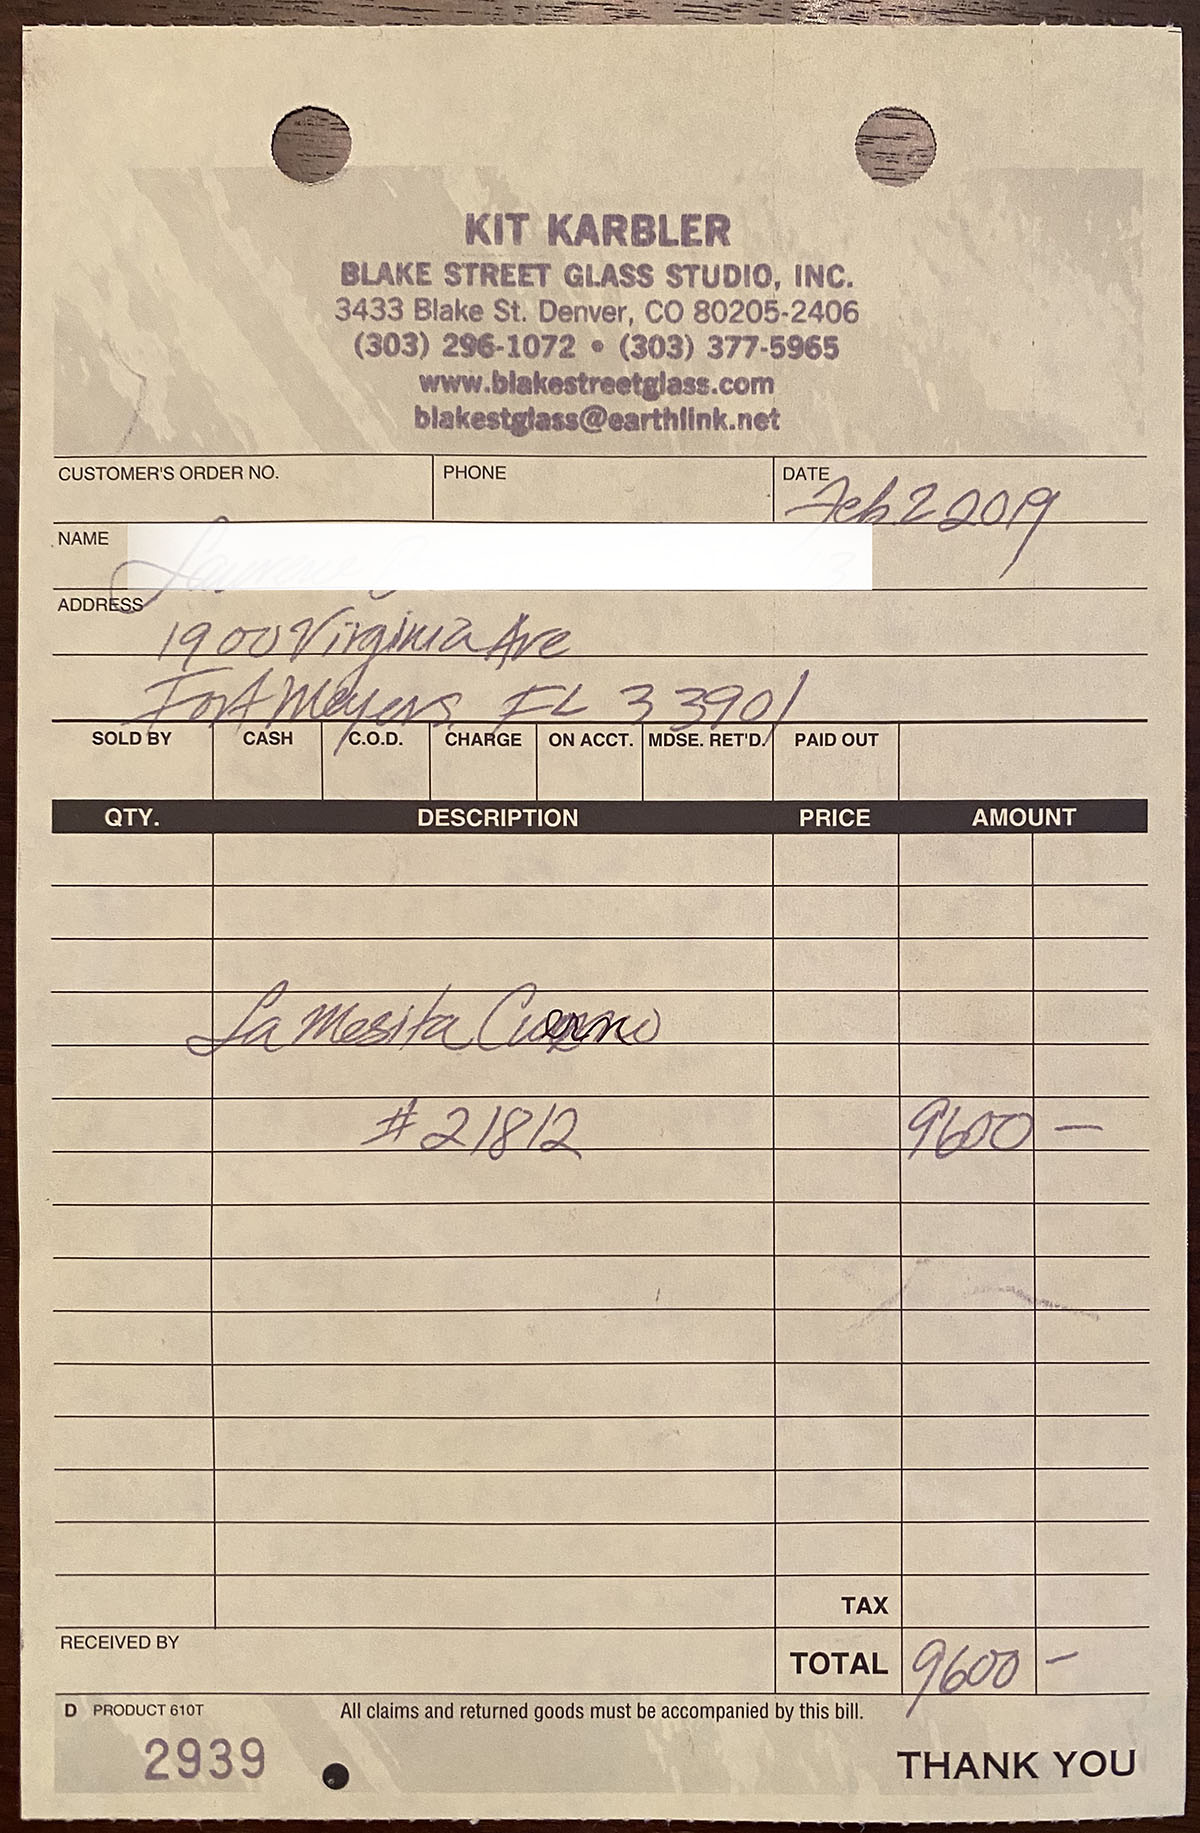 KIT KARBLER
BLAKE STREET GLASS STUDIO, INC.
3433 Blake St. Denver, CO 80205-2406
(303) 296-1072 • (303) 377-5965
www.blakestreetglass.com
blakestglass@earthlink.net
CUSTOMER'S ORDER NO. PHONE DATE Feb 2 2019
NAME
ADDRESS
1900 Virginia Ave
Fort Meyers, FL 33901
SOLD BY CASH C.O.D. CHARGE ON ACCT. MDSE. RET'D. PAID OUT
QTY. DESCRIPTION PRICE AMOUNT
La Mesita Cuerno
#21812 9600 —
TAX
RECEIVED BY
TOTAL 9600 -
D PRODUCT 610T All claims and returned goods must be accompanied by this bill.
2939 THANK YOU